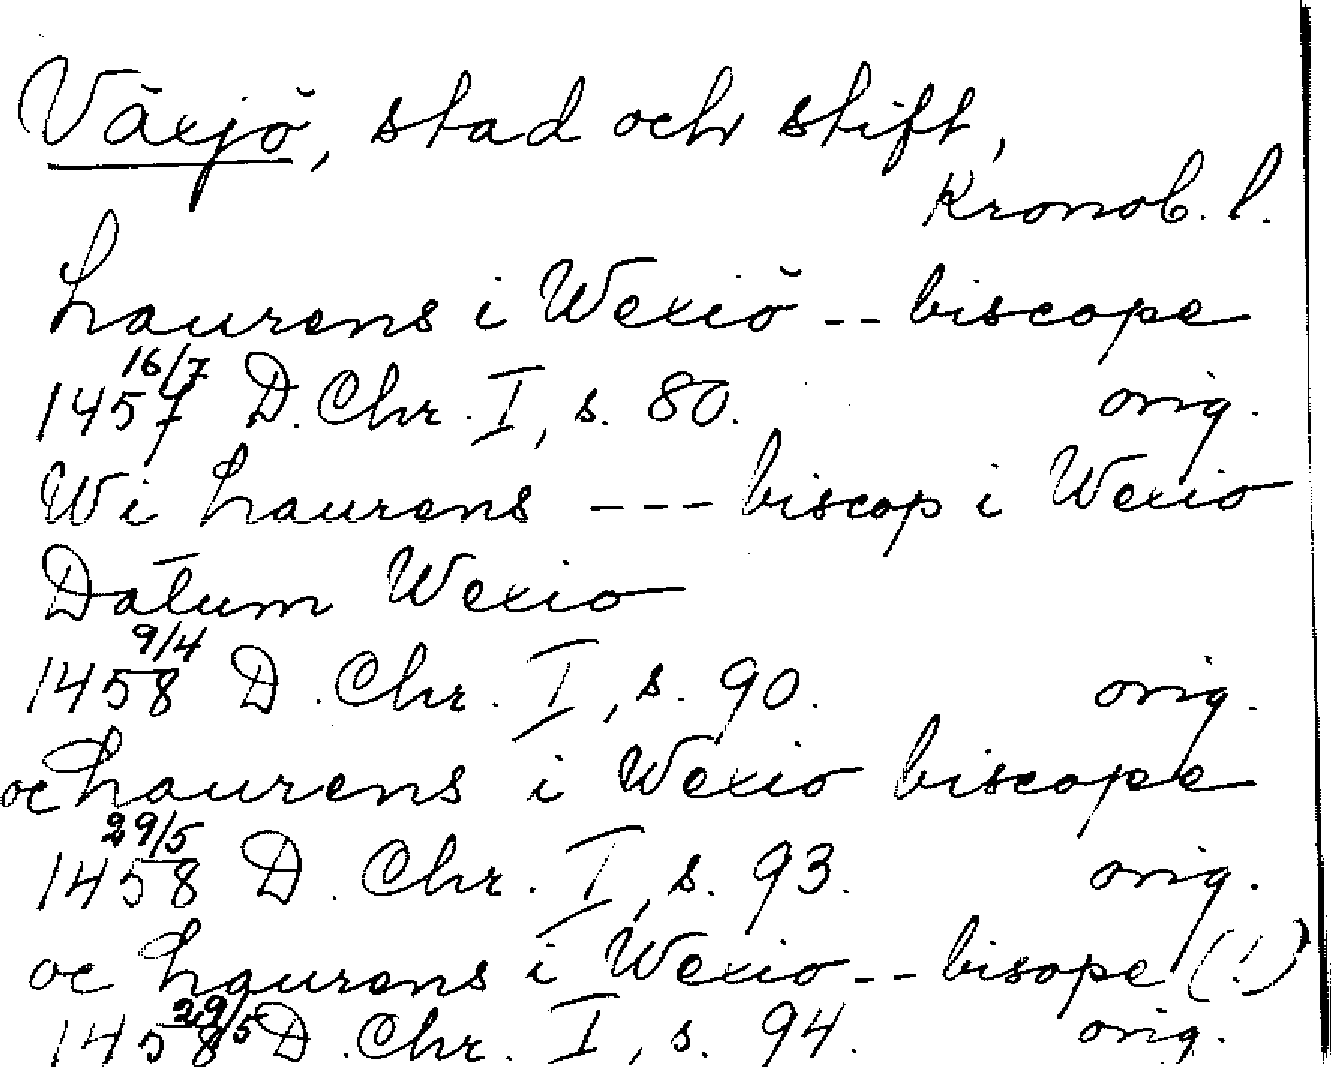 Växjö, stad och stift,
Kronob. l.
Laurens i Wexiö -- biscope
1457 16/7 D. Chr. I, s. 80. orig.
Wi Laurens --- biscop i Wexio
Datum Wexio
1458 9/4 D. Chr. I, s. 90. orig.
oc Laurens i Wexio biscope
1458 29/5 D. Chr. I, s. 93. orig.
oc Laurens i Wexio -- bisope (!)
1458 29/5 D. Chr. I, s. 94. orig.